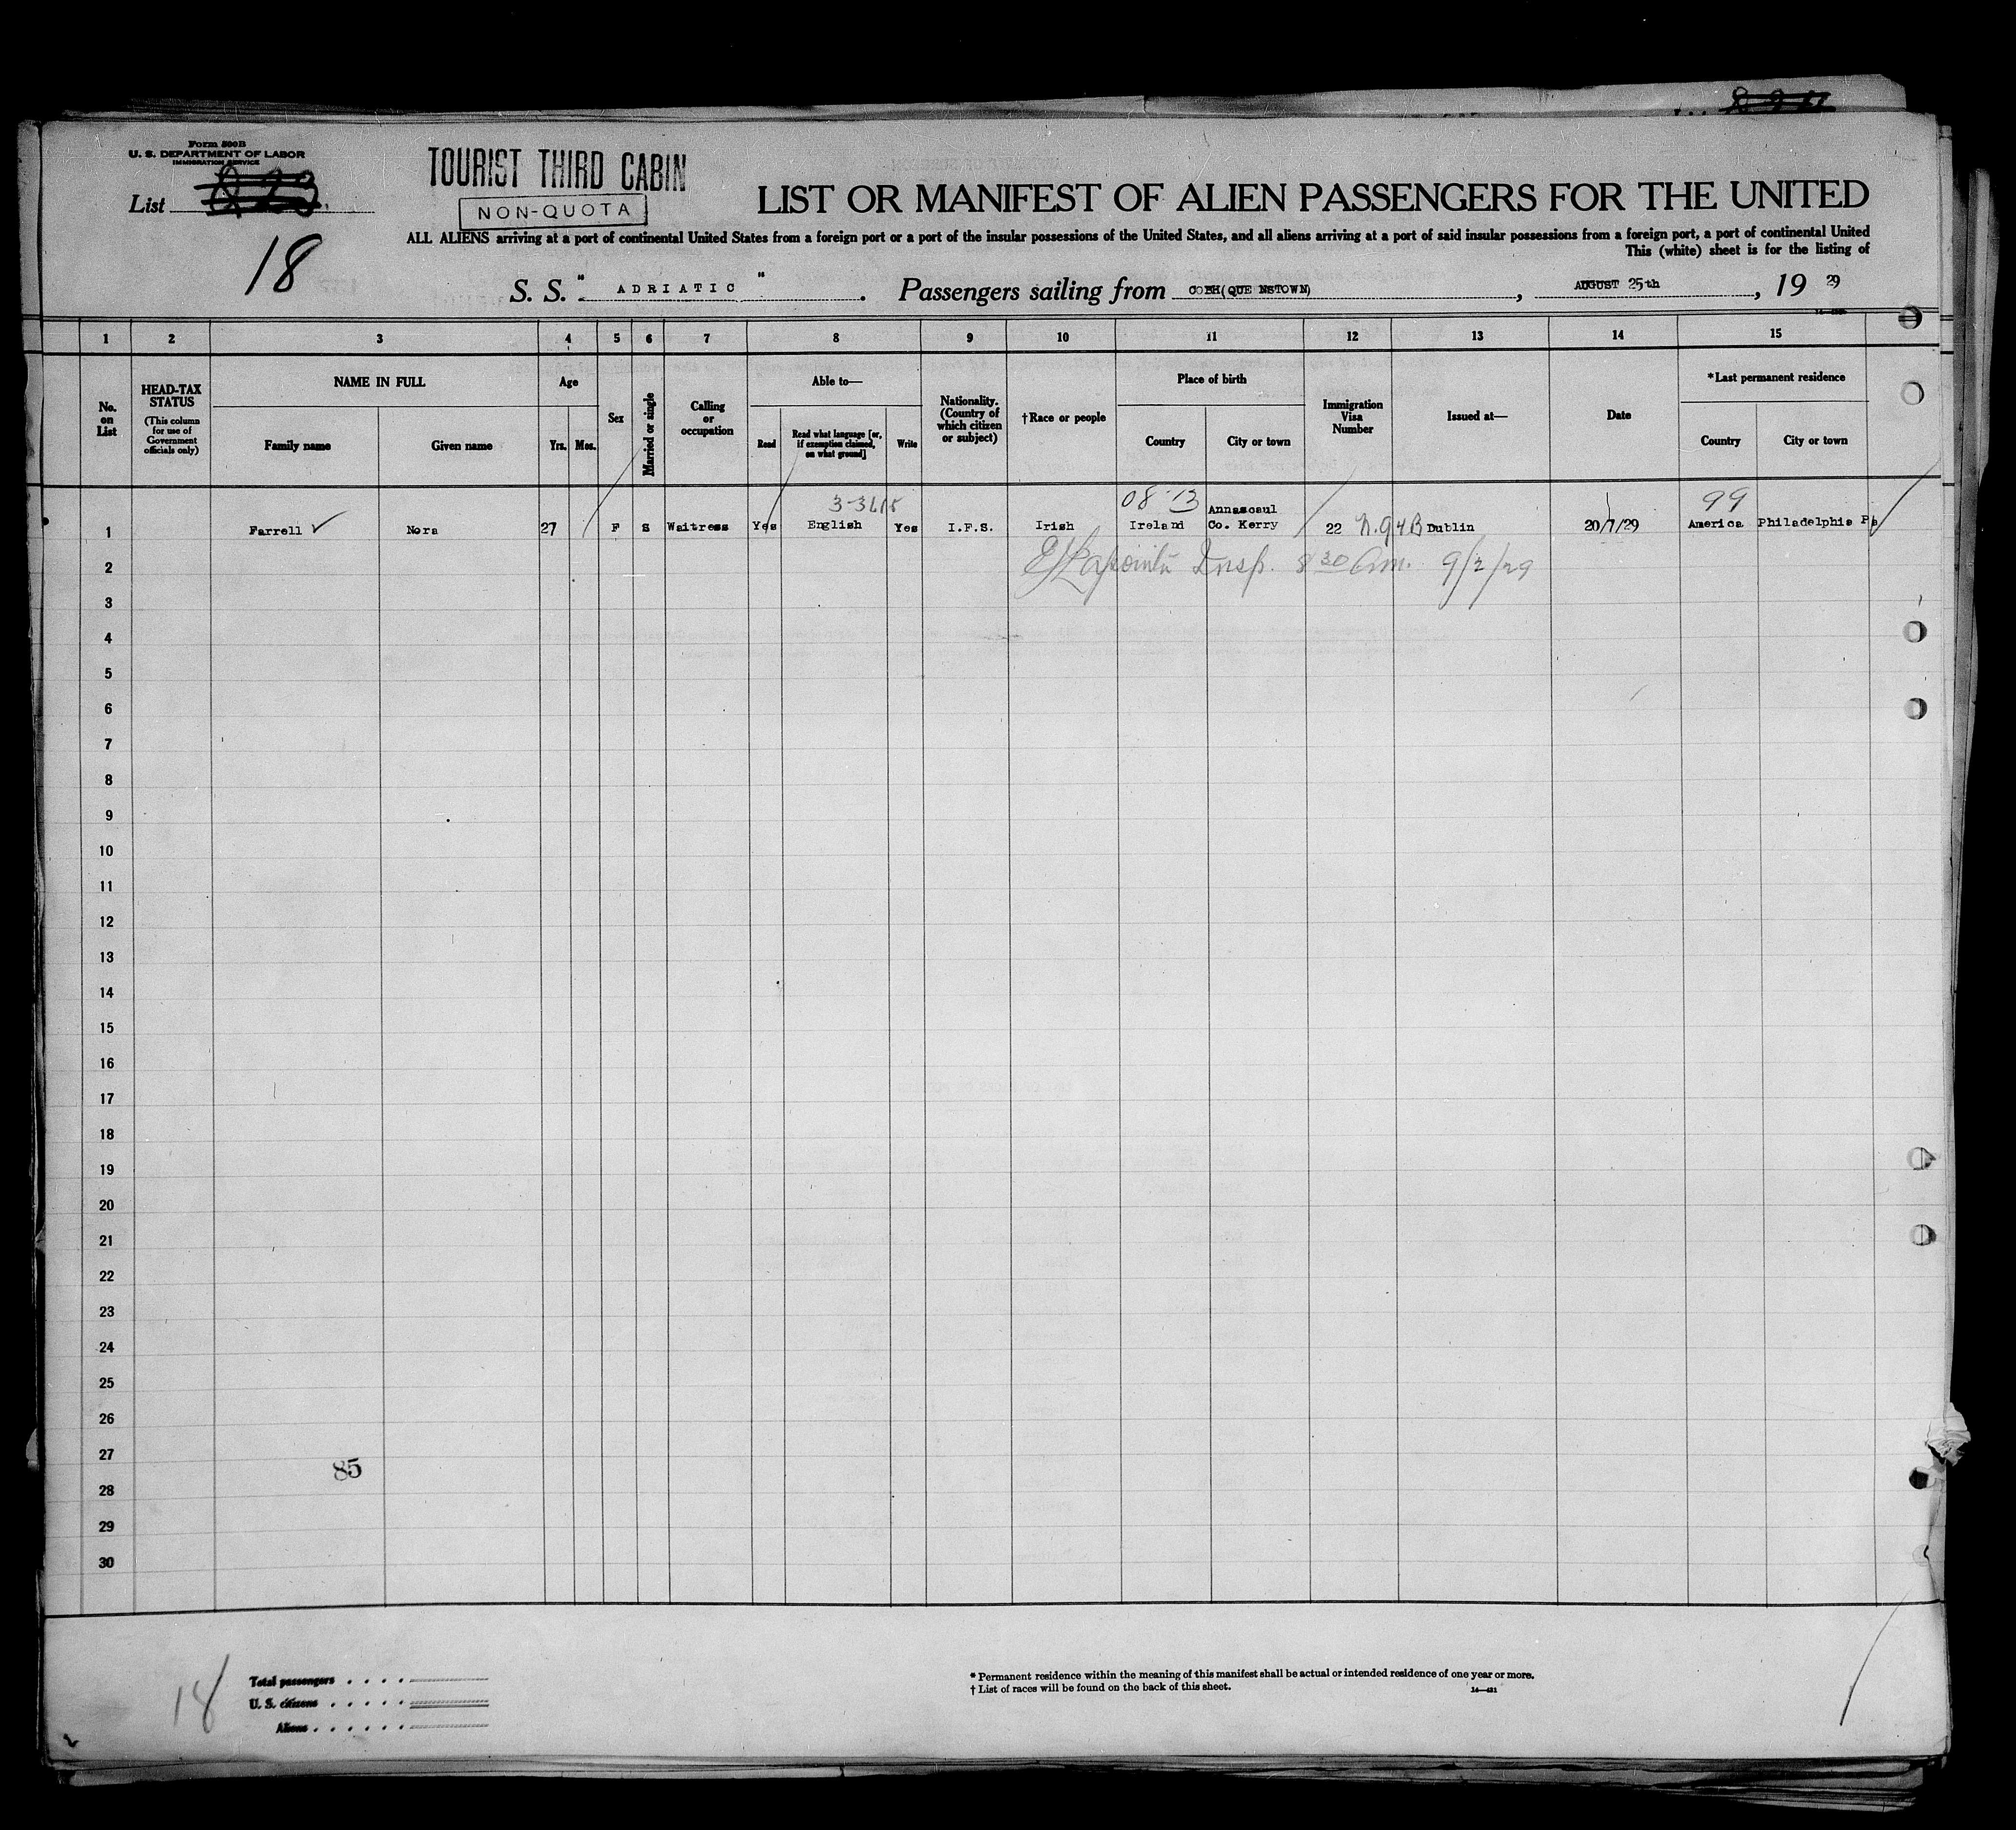 Form 500B
U. S. DEPARTMENT OF LABOR
IMMIGRATION SERVICE
List
18
TOURIST THIRD CABIN
NON-QUOTA
LIST OR MANIFEST OF ALIEN PASSENGERS FOR THE UNITED
ALL ALIENS arriving at a port of continental United States from a foreign port or a port of the insular possessions of the United States, and all aliens arriving at a port of said insular possessions from a foreign port, a port of continental United
This (white) sheet is for the listing of
S. S. " ADRIATIC " . Passengers sailing from COBH(QUE NSTOWN) , AUGUST 25th , 19 29
1 2 3 4 5 6 7 8 9 10 11 12 13 14 15
No. on List
HEAD-TAX STATUS
(This column for use of Government officials only)
NAME IN FULL
Family name Given name
Age
Yrs. Mos.
Sex
Married or single
Calling or occupation
Able to—
Read
Read what language [or, if exemption claimed, on what ground]
Write
Nationality. (Country of which citizen or subject)
†Race or people
Place of birth
Country City or town
Immigration Visa Number
Issued at—
Date
*Last permanent residence
Country City or town
08-13 99
1 Farrell Nora 27 F S Waitress Yes English Yes I.F.S. Irish Ireland Annascaul Co. Kerry 22 Dublin 20/7/29 America Philadelphia Pa
2 Insp. 8 30 Am. 9/2/29
3
4
5
6
7
8
9
10
11
12
13
14
15
16
17
18
19
20
21
22
23
24
25
26
27
85
28
29
30
18
Total passengers
U. S. citizens
Aliens
* Permanent residence within the meaning of this manifest shall be actual or intended residence of one year or more.
† List of races will be found on the back of this sheet.